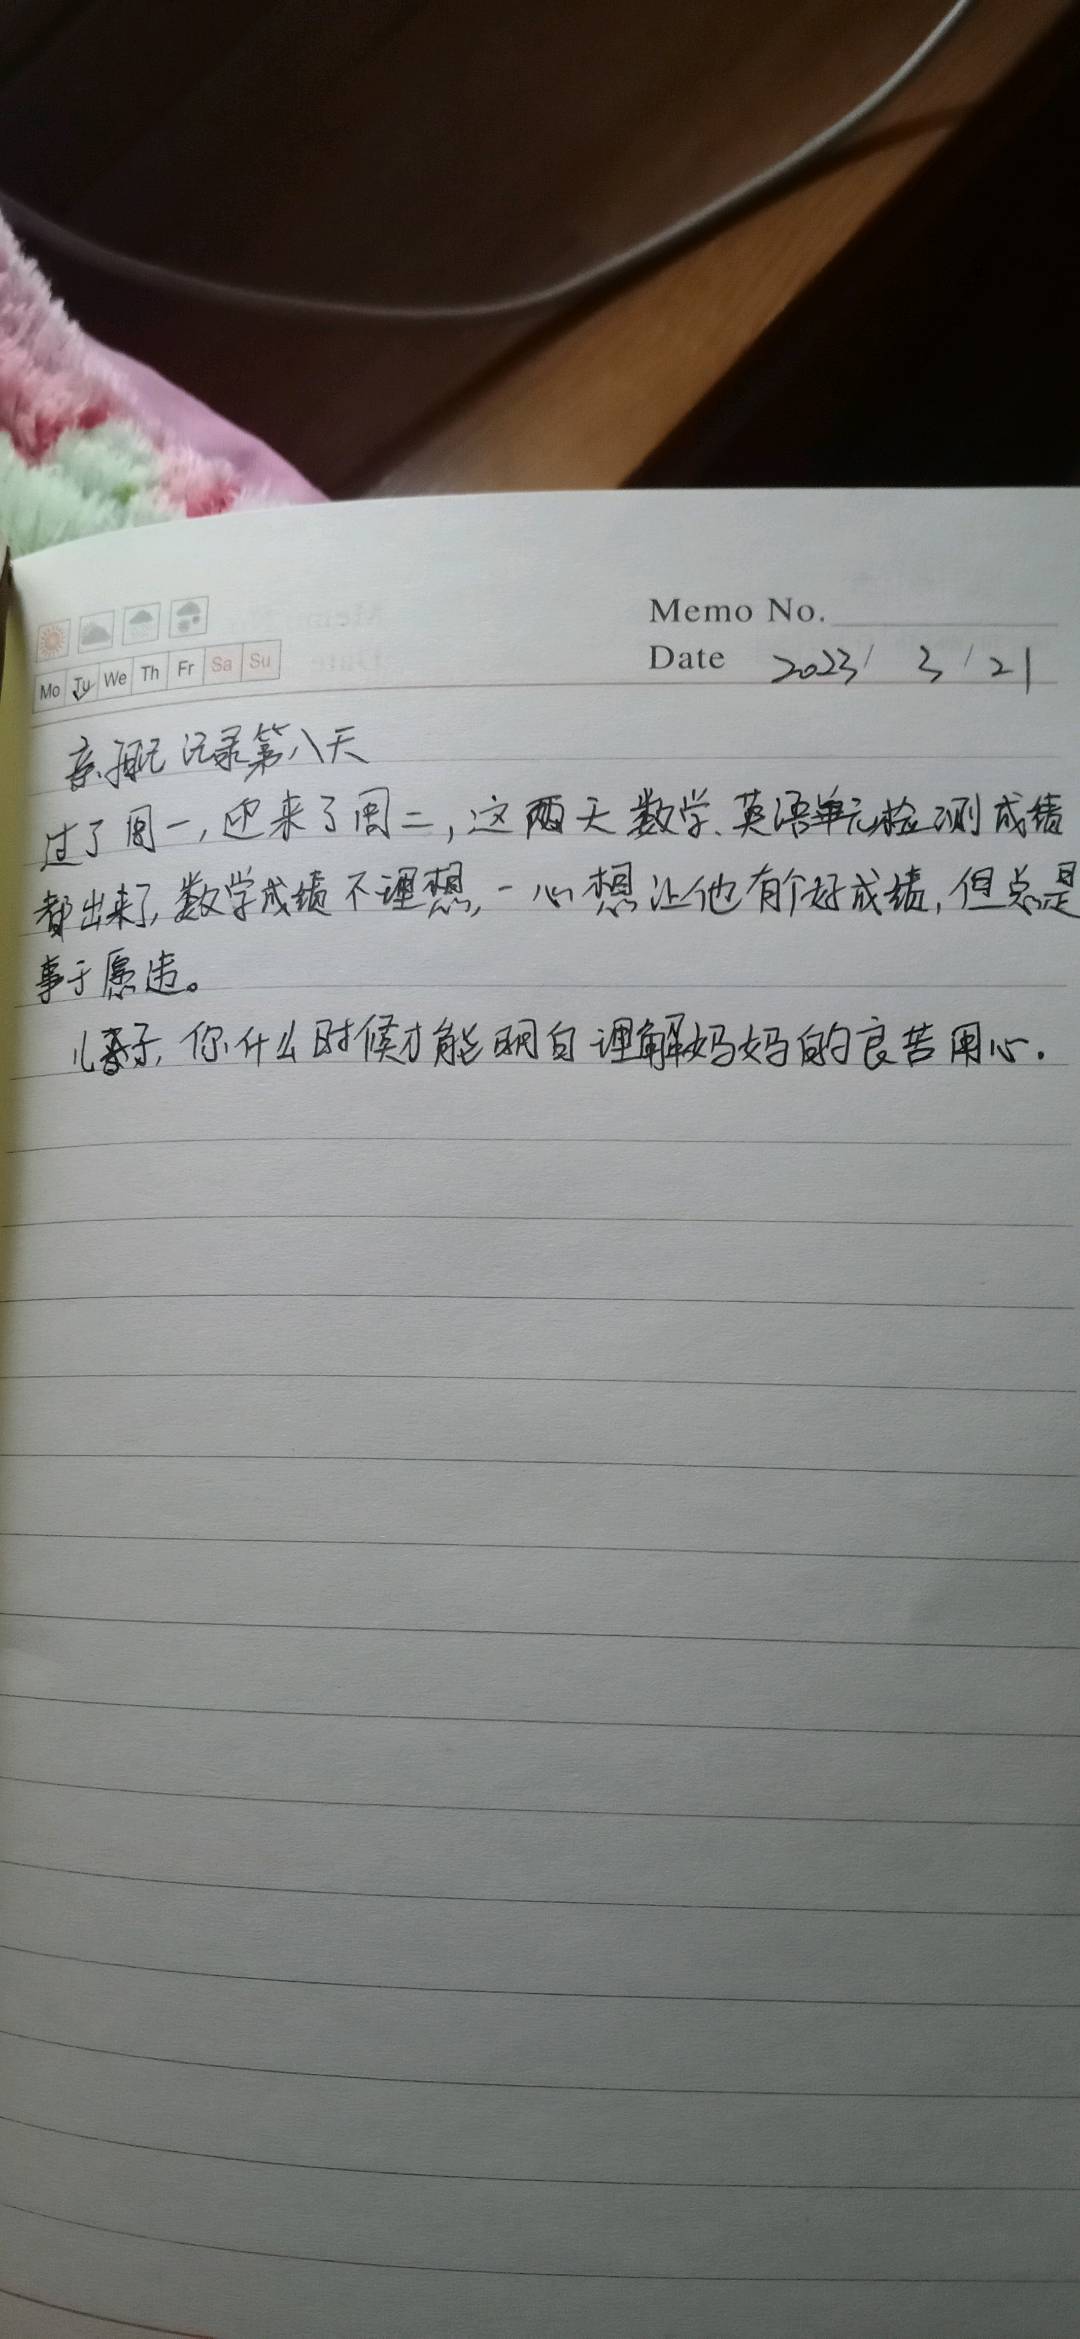 Memo No.
Mo Tu We Th Fr Sa Su
Date 2023/ 3 / 21
记录第八天
过了周一,迎来了周二,这两天数学、英语单元检测成绩
都出来了,数学成绩不理想,一心想让他有个好成绩,但总是
事于愿违。
儿子,你什么时候才能明白理解妈妈的良苦用心.